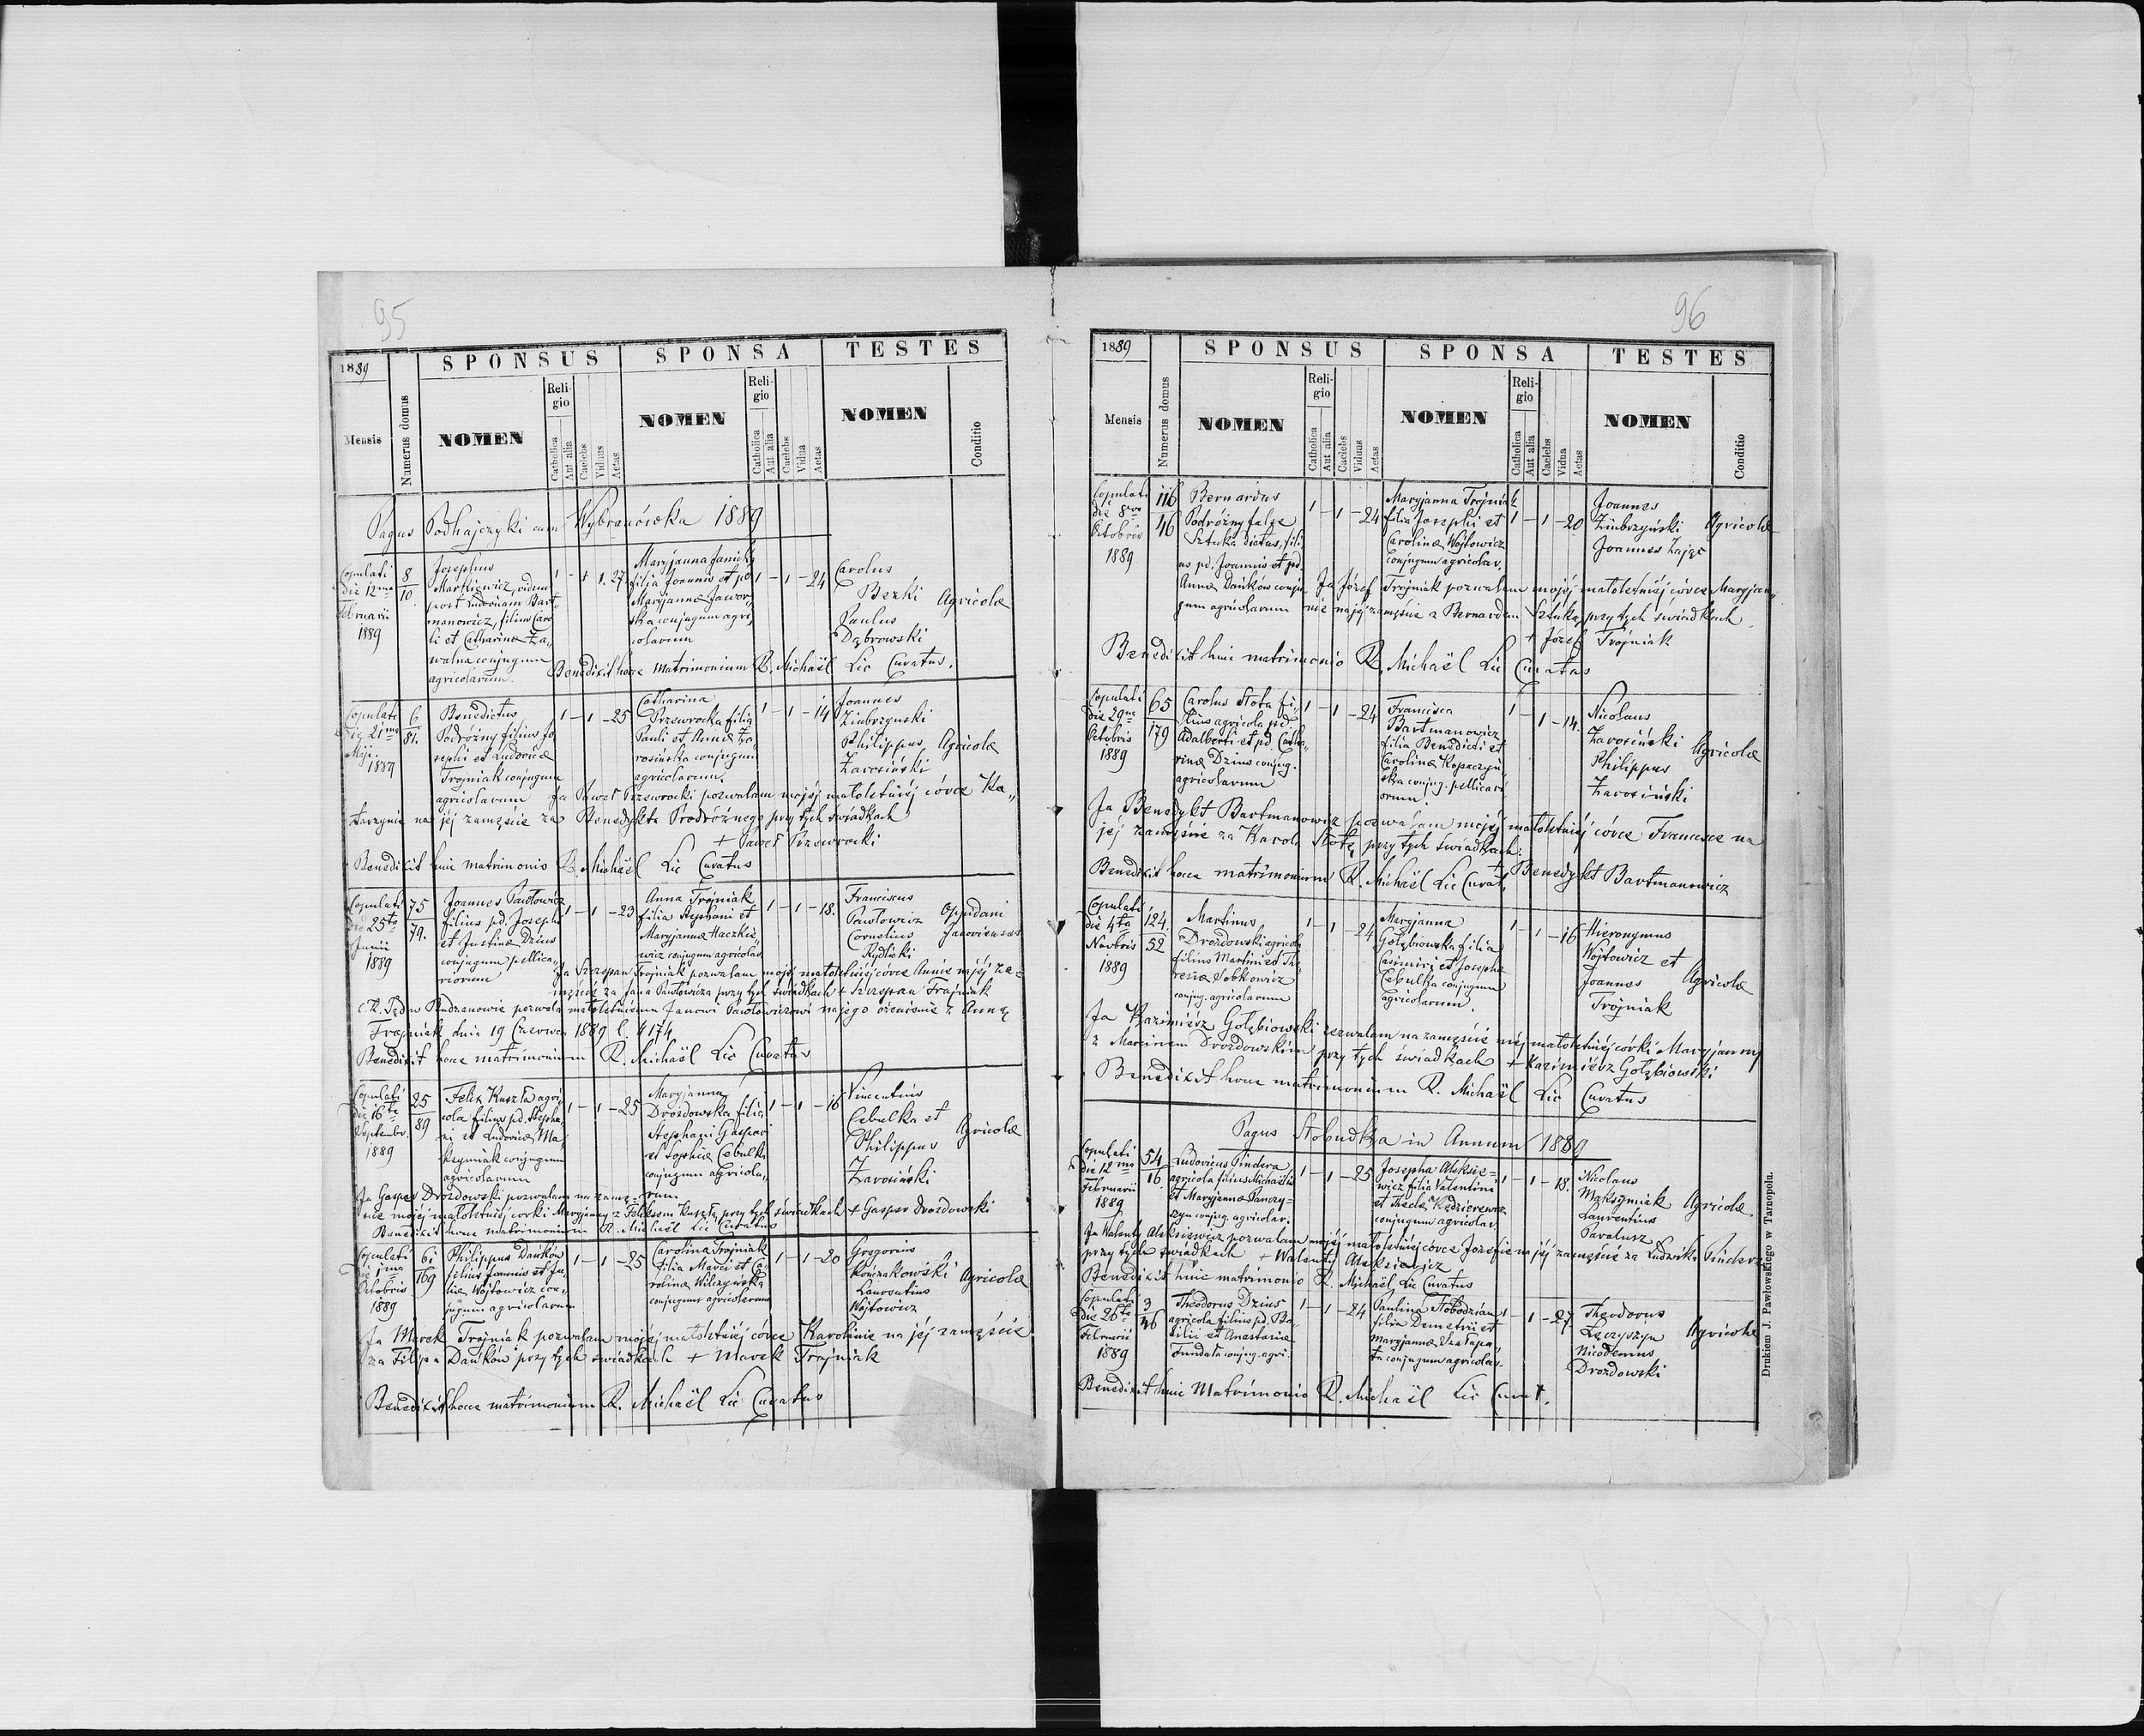 95
1889
SPONSUS
SPONSA
TESTES
Mensis
Numerus domus
NOMEN
Religio
Catholica
Aut alia
Caelebs
Viduus
Aetas
NOMEN
Religio
Catholica
Aut alia
Caelebs
Vidua
Aetas
NOMEN
Conditio
Pagus Podhajczyki cum Wybranówka 1889
Copulati
die 12ma
Februarii
1889
8
10
Josephus
Markiewicz, viduus
post Ludovicam Bart
manowicz, filius Caro
li et Catharinæ Za„
walna conjugum
agricolarum.
1 - + 1. 27
Maryjanna Janicka
filia Joannis et pd
Maryjannæ Jawor„
ska conjugum agri„
colarum
1 - 1 - 24
Carolus
Bezki
Paulus
Dąbrowski
Agricolæ
Benedixit hocce Matrimonium R. Michaël Lic Curatus.
Copulati
die 21ma
Maji
1889
6
81.
Benedictus
Podróżny filius Jo„
sephi et Ludovicæ
Trójniak conjugum
agricolarum
1 - 1 - 25
Catharina
Przeworocka filia
Pauli et Annæ Za„
rosińska conjugum
agricolarum.
1 - 1 - 14
Joannes
Ziubrzynski
Philippus
Zarosiński
Agricolæ
Ja Paweł Przeworocki pozwalam mojej małoletniéj córce Ka„
tarzynie na jéj zamęście za Benedykta Prodróżnego przy tych świadkach
+ Paweł Przeworocki
Benedixit huic matrimonio R. Michaël Lic Curatus
Copulati
die 25to
Junii
1889
75
79.
Joannes Pawłowicz
filius pd. Josephi
et Justinæ Dzius
conjugum pellica„
riorum
1 - 1 - 23
Anna Trójniak
filia Stephani et
Maryjannæ Haczkie„
wicz conjugum agricolar.
1 - 1 - 18.
Franciscus
Pawłowicz
Cornelius
Rydlicki
Oppidani
Janovienses
Ja Szczepan Trójniak pozwalam mojéj małoletniéj córce Annie na jéj za=
męście za Jana Pawłowicza przy tych świadkach + Szczepan Trajniak
C.K. Sąd w Budzanowie pozwala małoletniemu Janowi Pawłowiczowi na jego ożenienie z Anną
Trajniak dnia 19 Czerwca 1889 l. 4174
Benedixit hocce matrimonium R. Michaël Lic Curatus
Copulati
die 16ta
Septembr.
1889
25
89
Felix Kuszła agri„
cola filius pd. Stepha„
ni et Ludovicæ Ma„
ksymiak conjugum
agricolarum
1 - 1 - 25
Maryjanna
Drozdowska filia
Stephani Gaspari
et Sophiæ Cebulka
conjugum agricola„
rum
1 - 1 - 16
Vincentius
Cebulka et
Philippus
Zarosiński
Agricolæ
Ja Gasper Drozdowski pozwalam na zamę=
ście mojéj małoletniéj córki Maryjanny z Feliksem Kuszłą przy tych świadkach + Gasper Drozdowski
Benedixit hocce matrimonium R. Michaël Lic Curatus
Copulati
die 1ma
Octobris
1889
61
169
Philippus Dańków
filius Joannis et Ju„
liæ Wójtowicz con„
jugum agricolarum
1 - 1 - 25
Carolina Trójniak
filia Marci et Ca„
rolinæ Wilczyńska
conjugum agricolarum
1 - 1 - 20
Gregorius
Kończakowski
Laurentius
Wójtowicz
Agricolæ
Ja Marek Trojniak pozwalam mojéj małoletniéj córce Karolinie na jéj zamęście
za Filipa Dańków przy tych świadkach + Marek Trajniak
Benedixit hocce matrimonium R. Michaël Lic Curatus
96
1889
SPONSUS
SPONSA
TESTES
Mensis
Numerus domus
NOMEN
Religio
Catholica
Aut alia
Caelebs
Viduus
Aetas
NOMEN
Religio
Catholica
Aut alia
Caelebs
Vidua
Aetas
NOMEN
Conditio
Copulati
die 8va
Octobris
1889
116
46
Bernardus
Podróżny false
Sztuka dictus, fili„
us pd. Joannis et pd.
Annæ Dańków conju
gum agricolarum
1 - 1 - 24
Maryjanna Trójniak
filia Josephi et
Carolinæ Wójtowicz
conjugum agricolar.
1 - 1 - 20
Joannes
Ziubrzyński
Joannes Zając
Agricolæ
Ja Józef Trójniak pozwalam mojéj małoletniéj córce Maryjan„
nie na jéj zamęście z Bernardem Sztuką przy tych świadkach
+ Józef Trójniak
Benedixit huic matrimonio R. Michaël Lic Curatus
Copulati
die 29na
Octobris
1889
65
179
Carolus Słota fi„
lius agricola pd.
Adalberti et pd. Catha„
rinæ Dzius conjug.
agricolarum
1 - 1 - 24
Francisca
Bartmanowicz
filia Benedicti et
Carolinæ Kopaczyń„
ska conjug. pellicari
orum.
1 - 1 - 14.
Nicolaus
Zarosiński
Philippus
Zarosiński
Agricolæ
Ja Benedykt Bartmanowicz pozwalam mojéj małoletniéj córce Francisce na
jéj zamęście za Karola Słotę przy tych świadkach:
+ Benedykt Bartmanowicz
Benedixit hocce matrimonium R. Michaël Lic Curat.
Copulati
die 4ta
Novbris
1889
124.
52
Martinus
Drozdowski agricola
filius Martini et Th„
resiæ Sobkowicz
conjug. agricolarum
1 - 1 - 24
Maryjanna
Gołębiowska filia
Casimiri et Josephæ
Cebulka conjugum
agricolarum.
1 - 1 - 16
Hieronymus
Wójtowicz et
Joannes
Trójniak
Agricolæ
Ja Kazimiérz Gołębiowski zezwalam na zamęście méj małoletniéj córki Maryjanny
z Marcinem Drozdowskim przy tych świadkach + Kazimiérz Gołębiowski
Benedixit hocce matrimonium R. Michaël Lic Curatus
Pagus Słobudka in Annum 1889
Copulati
die 12ma
Februarii
1889
54
16
Ludovicus Pindera
agricola filius Michaëlis
et Maryjannæ Panczy=
szyn conjug. agricolar.
1 - 1 - 25
Josepha Aleksie=
wicz filia Valentini
et Theclæ Kędzierewicz
conjugum agricolar.
1 - 1 - 18.
Nicolaus
Maksymiak
Laurentius
Pavalusz
Agricolæ
Ja Walenty Aleksiewicz pozwalam mojéj małoletniéj córce Jozefie na jéj zamęście za Ludwika Pindera
przy tych świadkach + Walenty Aleksiewicz
Benedixit huic matrimonio R. Michaël Lic Curatus
Copulati
die 26ta
Februarii
1889
3
46
Theodorus Dzius
agricola filius pd. Ba„
silii et Anastasiæ
Fundała conjug. agri.
1 - 1 - 24
Paulina Słobodzian
filia Demetrii et
Maryjannæ
ta conjugum agricolar.
1 - 1 - 27
Theodorus
Łęczyszyn
Nicodemus
Drozdowski
Agricolæ
Benedixit huic Matrimonio R. Michaël Lic Curat.
Drukiem J. Pawłowskiego w Tarnopolu.